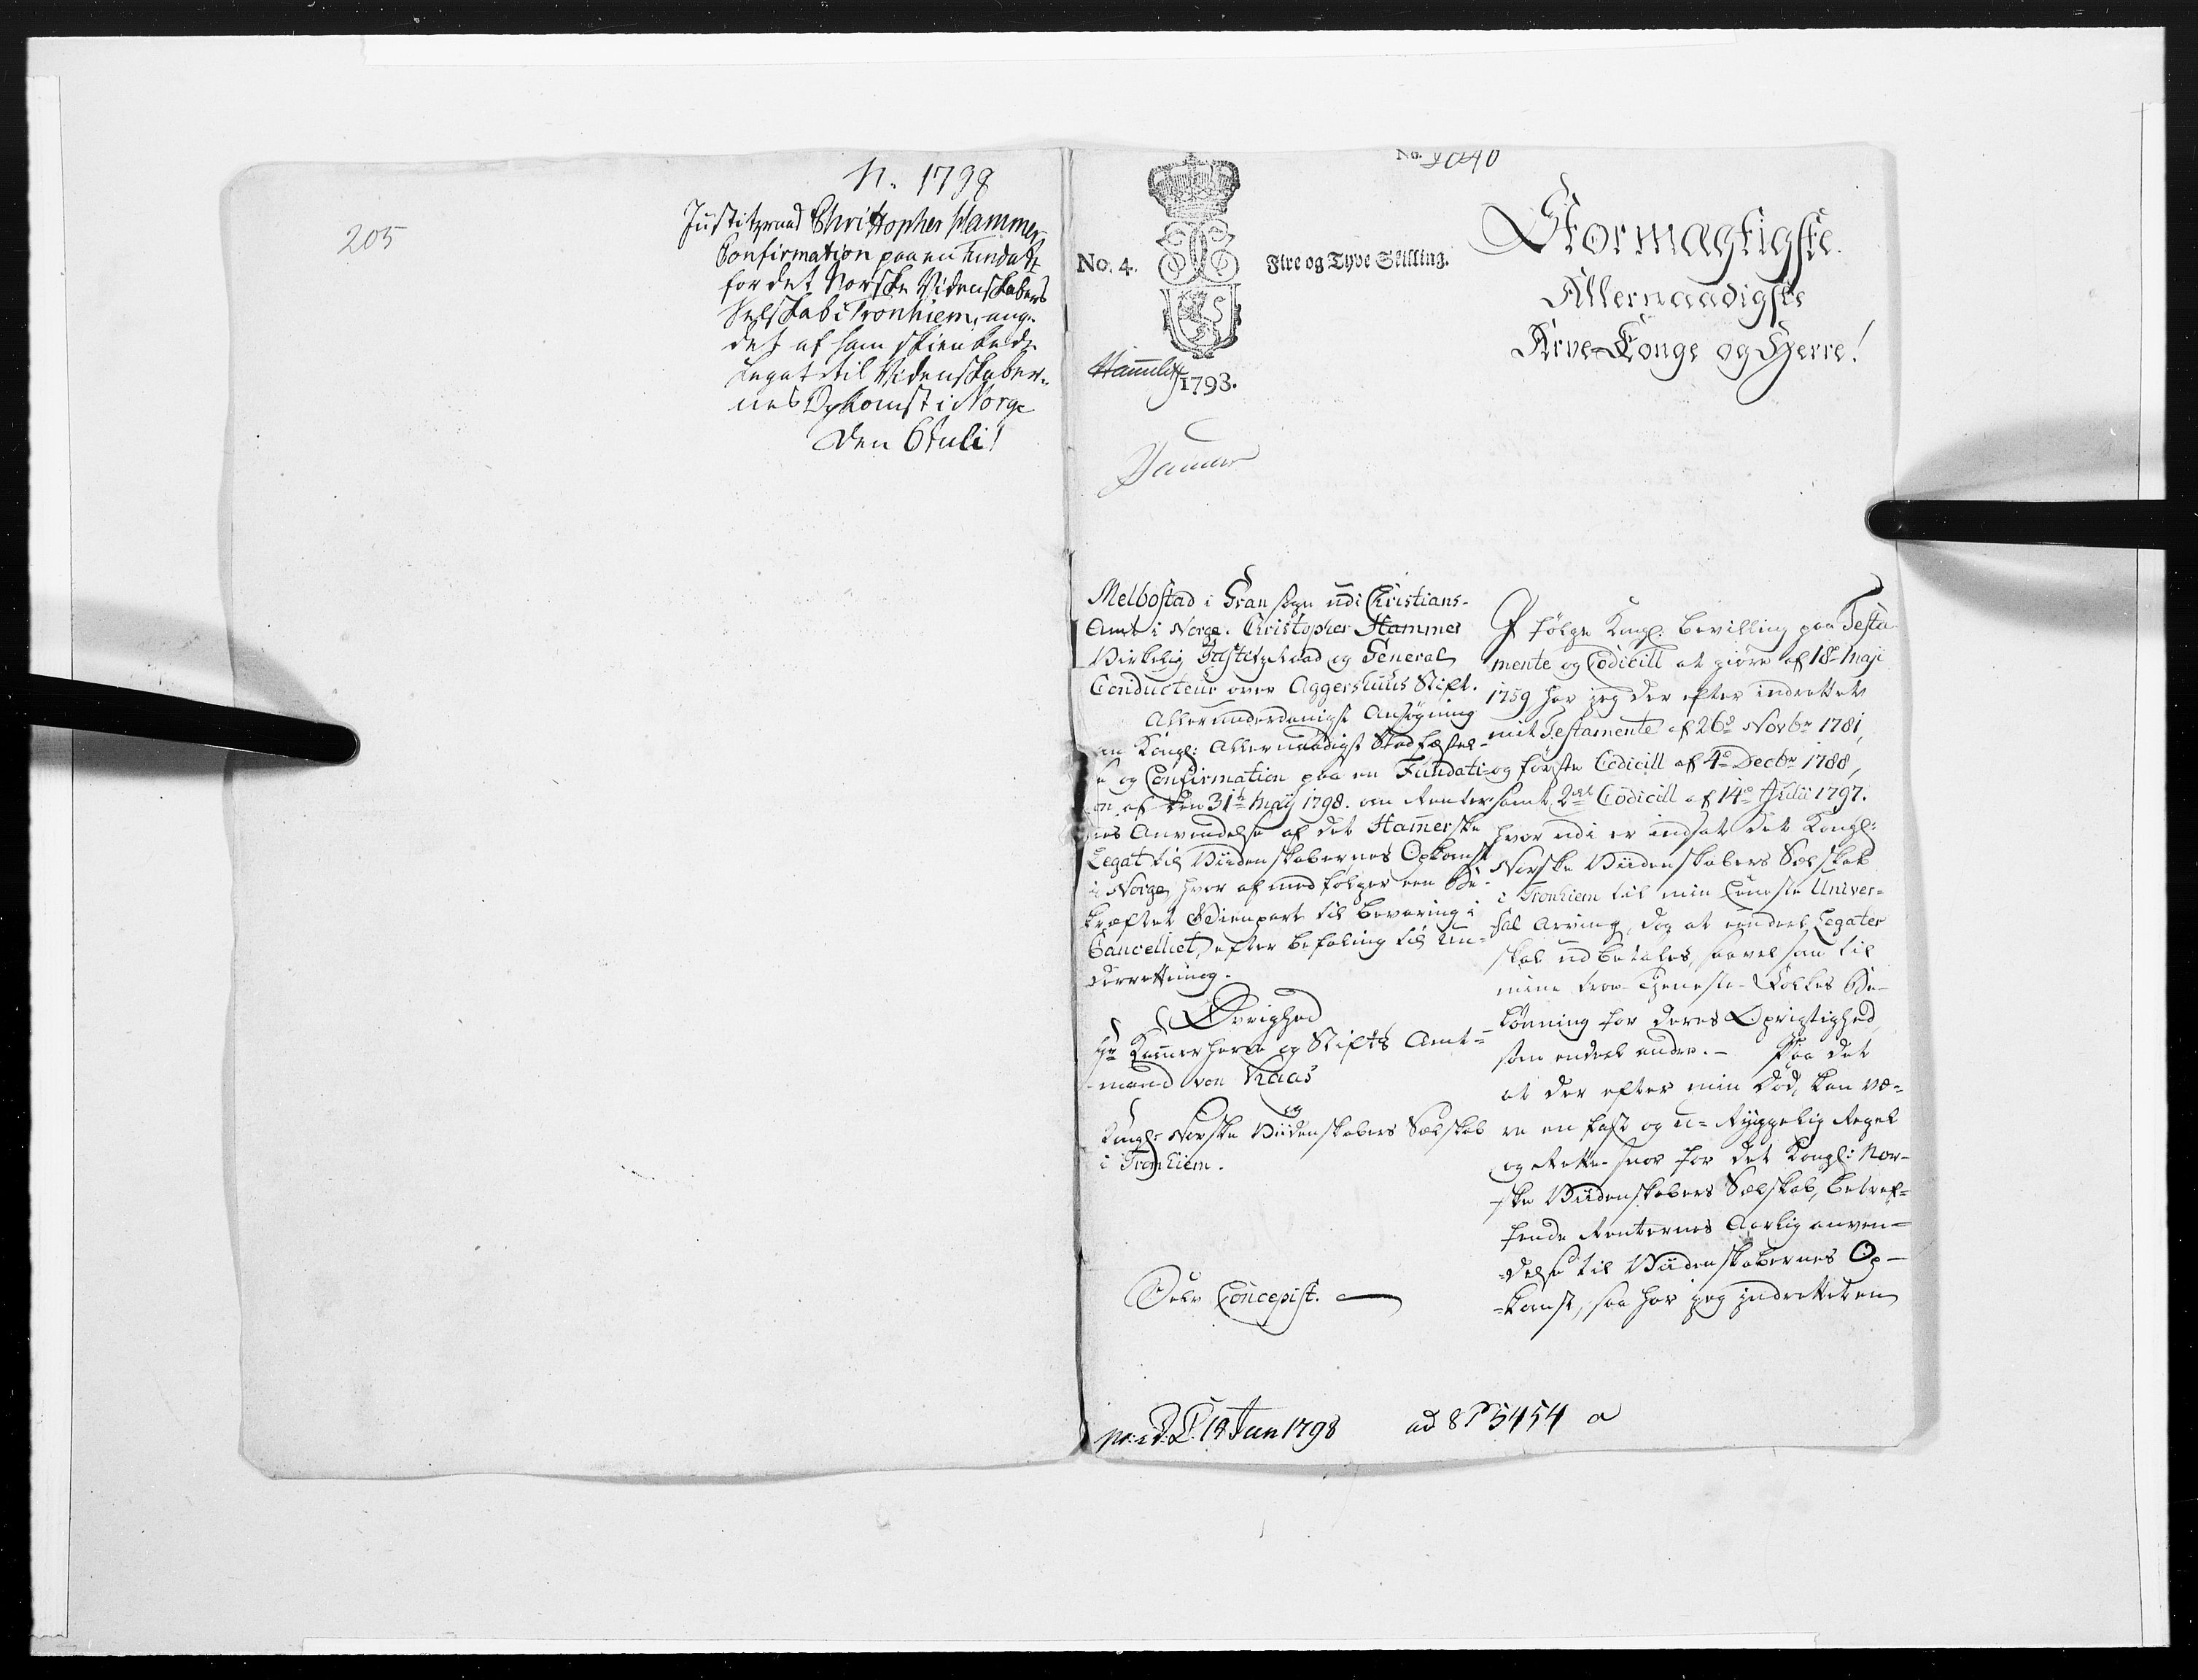 205
N. 1798
Justitzraad Christopher Hammer
Confirmation paa en Fundatz
for det Norske Videnskabers
Selskab i Tronhiem, ang:
det af ham skienkede
Legat til Videnskaber-
nes Opkomst i Norge
Den 6 Juli!
No.
No. 4.
Fire og Tyve Skilling.
1793.
Hammer
Stormægtigste
Allernaadigste
Arve-Konge og Herre!
Melbostad i Gran Sogn udi Christians-
Amt i Norge. Christopher Hammer
Virkelig Justitz Raad og General
Conducteur over Aggershuus Stift.
Allerunderdanigst Ansøgning
om Kongl: Allernaadigst Stadfæstel-
se og Confirmation paa en Fundati-
on af den 31te Maij 1798. om Renter-
nes Anvendelse af det Hamerske
Legat til Viidenskabernes Opkomst
i Norge, hvor af medfølger een Be-
kræftet Gienpart til bevaring i
Cancelliet, efter befaling til Un-
derretning.
Øvrighed
Hr Kammerherre og Stifts Amt-
mand von Kaas
og
Kongl: Norske Viidenskabers Selskab
i Tronhiem.
Selv Concepist.
I følge Kongl: bevilling paa Testa-
mente og Codicill at giøre af 18de Maji
1759 har jeg der efter indrettet
mit Testamente af 26de Novbr 1781,
og første Codicill af 4de Decbr 1788,
samt 2det Codicill af 14de Julii 1797.
hvor udi er indsat det Kongl:
Norske Viidenskabers Selskab
i Tronhiem til min Eeneste Univer-
sal Arving, dog at eendeel Legater
skal udbetales, saavel som til
mine troe Tieneste-Folkes Be-
lønning for deres Oprigtighed,
som endeel andre. - Paa det
at der efter min Død, kan væ-
re en fast og u-Ryggelig Regel
og Rette-snor for det Kongl: Nor-
ske Viidenskabers Selskab, betref-
fende Renternes Aarlig anven-
delse til Viidenskabernes Op-
komst, saa har jeg indrettet en
19 Jun 1798
ad 5454 a